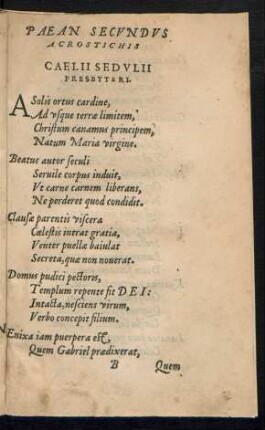 PAEAN SECVNDVS
ACROSTICHIS
CAELII SEDVLII
PRESBYTERI.
A Solis ortus cardine,
Ad vsque terræ limitem,
Christum canamus principem,
Natum Maria virgine.
Beatus autor seculi
Seruile corpus induit,
Vt carne carnem liberans,
Ne perderet quod condidit.
Clausæ parentis viscera
Cœlestis intrat gratia,
Venter puellæ baiulat
Secreta, quæ non nouerat.
Domus pudici pectoris,
Templum repente fit DEI:
Intacta, nesciens virum,
Verbo concepit filium.
Enixa iam puerpera est,
Quem Gabriel prædixerat,
B Quem